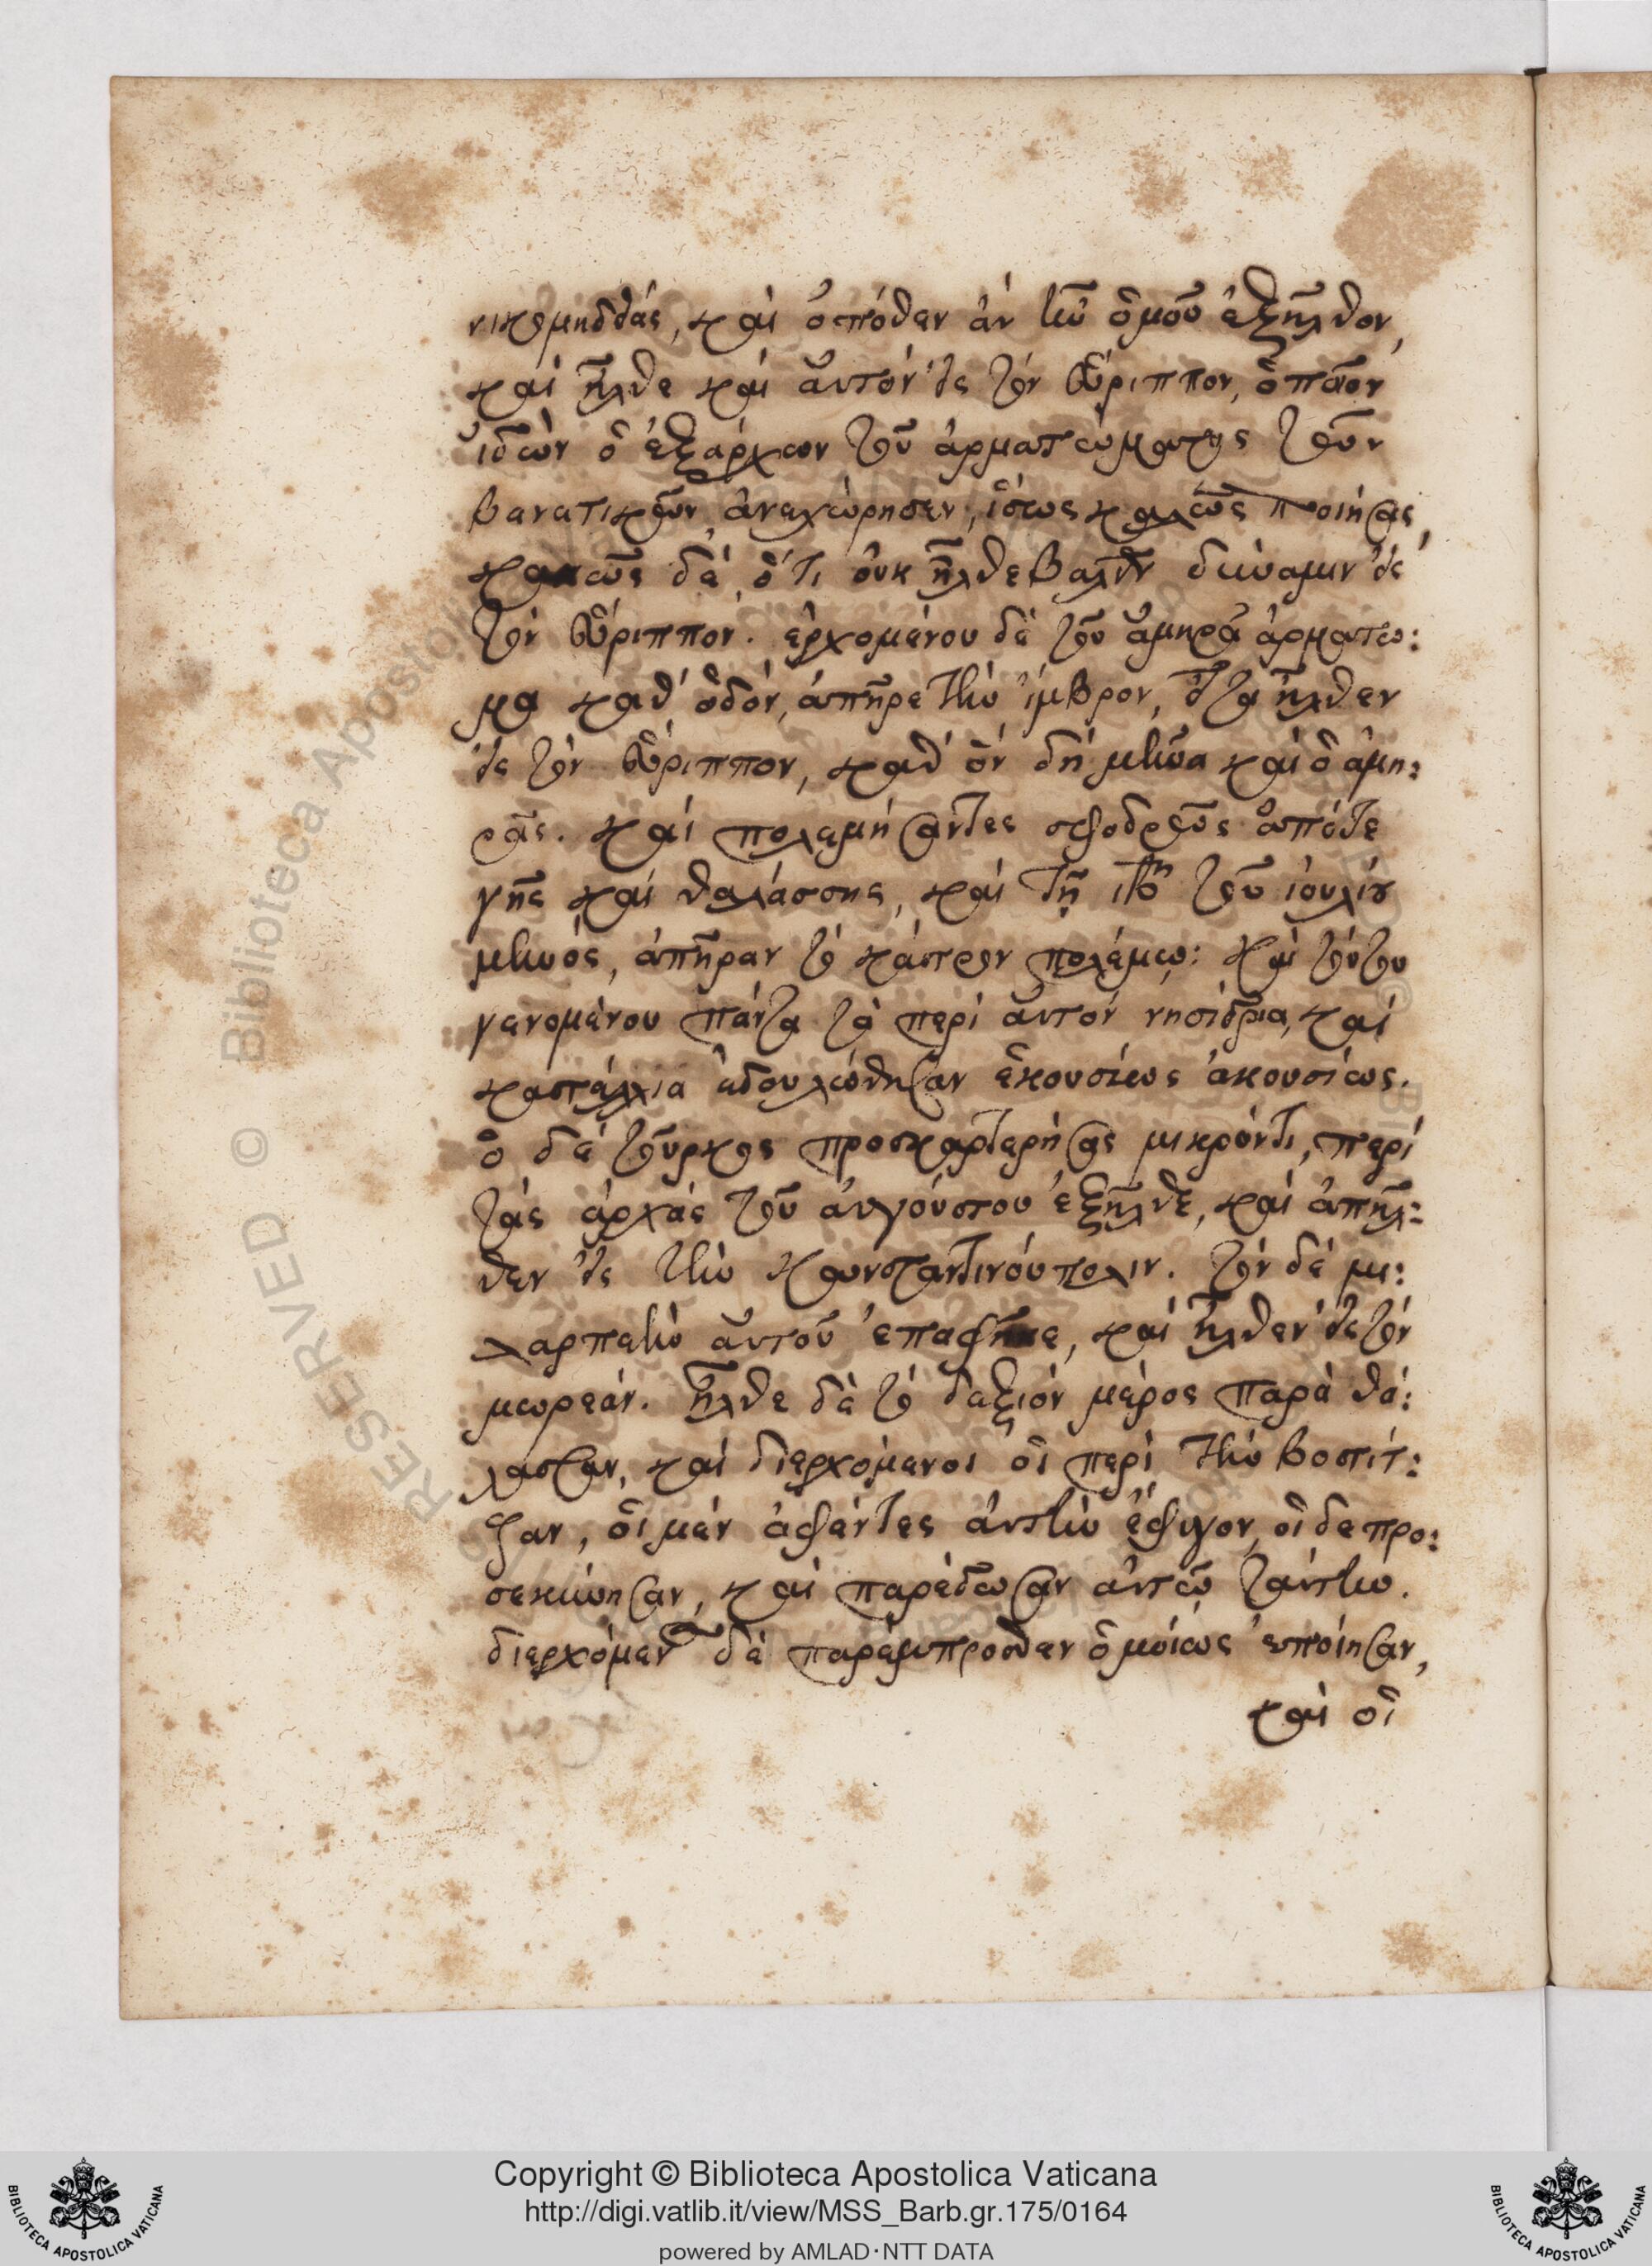 νικομηδείας, καὶ ὁπόθεν ἂν ἦν ὁμοῦ ἐξῆλθον,
καὶ ἦλθε καὶ αὐτὸν εἰς τὸν εὔριππον, ὅπερ
ἰδὼν ὁ ἐξάρχων τοῦ ἀρματώματος τῶν
βενετικῶν ἀνεχώρησεν, ἴσως καλῶς ποιήσας,
κακῶς δὲ, ὅτι οὐκ ἦλθε βαλεῖν δύναμιν εἰς
τὸν εὔριππον. ἐρχομένου δὲ τοῦ ἀμηρᾶ ἀρματω:
μα καθ' ὁδὸν, ἀπῆρε τὴν ἴμβρον, εἶτα ἦλθεν
εἰς τὸν εὔριππον, καθ' ὃν δὴ μῆνα καὶ ὁ ἀμη:
ρᾶς. καὶ πολεμήσαντες σφοδρῶς ἀπό τε
γῆς καὶ θαλάσσης, καὶ τῇ ιβῃ τοῦ ἰουλίου
μηνός, ἀπῆραν τὸ κάστρον πολέμῳ: καὶ τούτου
γενομένου πάντα τὰ περὶ αὐτὸν νησίδρια, καὶ
καστέλλια ἐδουλώθησαν ἑκουσίως ἀκουσίως.
ὁ δὲ τοῦρκος προσκαρτερήσας μικρόν τι, περὶ
τὰς ἀρχὰς τοῦ αὐγούστου ἐξῆλθε, καὶ ἀπῆλ:
θεν εἰς τὴν κωνσταντινούπολιν. τὸν δὲ μι:
λαρπεὴν αὐτοῦ ἐπαφῆκε, καὶ ἦλθεν εἰς τὸν
μωρεάν. ἦλθε δὲ τὸ δεξιὸν μέρος παρὰ θά:
λασσαν, καὶ διερχόμενοι οἱ περὶ τὴν βοστίτ:
ζαν, οἱ μὲν ἀφέντες αὐτὴν ἔφυγον, οἱ δε προ:
σεκύνησαν, καὶ παρέδωσαν αὐτῷ ταύτην.
διερχόμεν δὲ παρέμπροσθεν ὁμοίως ἐποίησαν,
καὶ οἱ
Copyright © Biblioteca Apostolica Vaticana
http://digi.vatlib.it/view/MSS_Barb.gr.175/0164
powered by AMLAD·NTT DATA